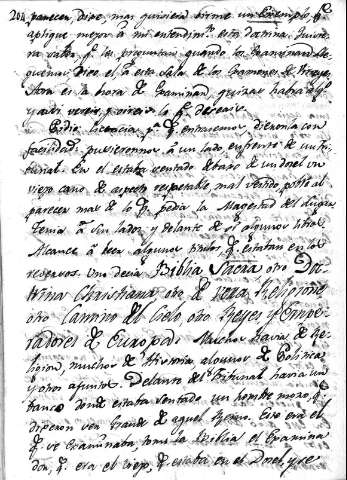 204 parecer, dixe, mas quisiera oirme un Exemplo, q.e
aplique mejor à mi entendim.to esta doctrina. Quisie-
ra saber, q.e les preguntan quando los Examinan
Dixo el à esta Sala de los Examenes de
Aora es la hora de Examinar, quizas habrà alg.o
y assi vereis, y oireis lo q.e deseais.
Pidio licencia p.a q.e entrasemos, dieronla con
facilidad; pusieronnos à un lado enfrente de un tri-
bunal. En el estaba sentado debaxo de un dosel un
viejo cano de aspecto respetable, mal vestido, pobre al
parecer mas de lo q.e pedia la Magestad del lugar.
Tenia à sus lados y delante de si algunos libros.
Alcance à leer algunos titulos, q.e estaban en los
reversos. Uno decia Biblia Sacra otro Doc-
trina Christiana, otro de vera Religione
otro Camino del Cielo, otro Reyes y Empe-
radores de Europa. Muchos havia de Re-
ligion, muchos de Historia, algunos de Politica
y otros asuntos. Delante del Tribunal havia un
banco donde estaba sentado un hombre mozo, q.e
dixeron ser Grande de aquel Reyno. Este era el
q.e se Examinaba, tomò la Biblia el Examina
dor, q.e era el viejo, q.e estaba en el Dosel, y se